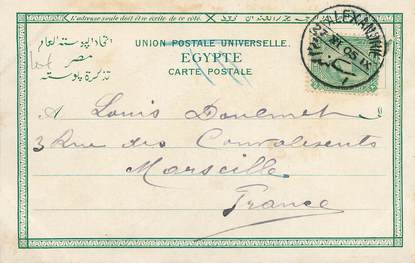 L'adresse seule doit être écrite de ce côté.
UNION POSTALE UNIVERSELLE.
EGYPTE
CARTE POSTALE
اتحاد البوستة العام
مصر
تذكرة بوستة
ALEXANDRIE
A Louis Doulmet
3 Rue des Convalescents
Marseille
France